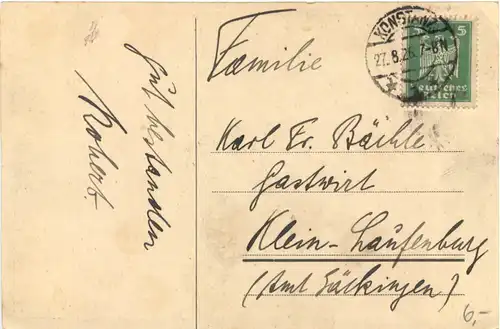 Gut bestanden
Robert
KONSTANZ
27.8.25. 7-8N
5
Deutsches Reich
Familie
Karl Fr. Bächle
Gastwirt
Klein-Laufenburg
(Amt Säckingen)
6,-